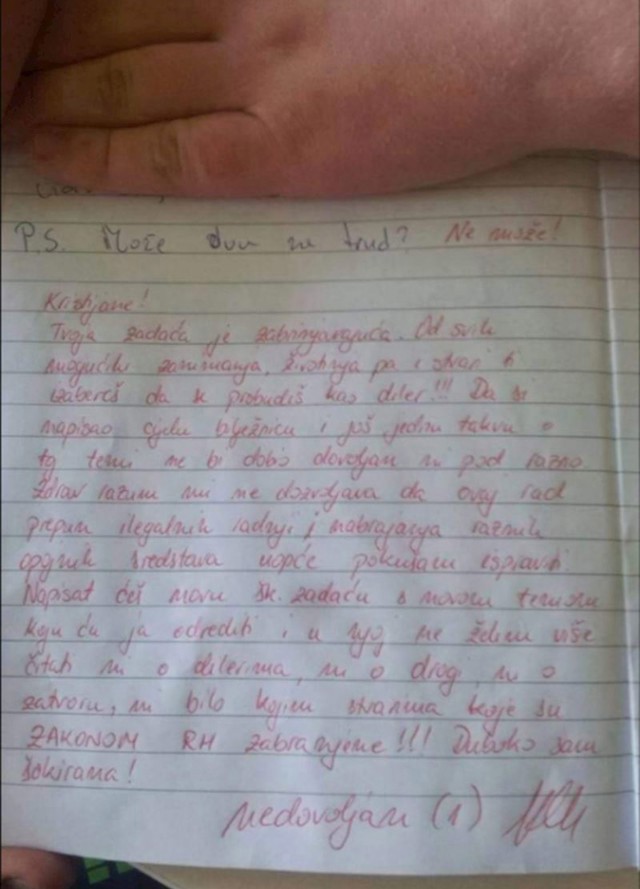 P.S. Može dva za trud? Ne može!
Kristijane!
Tvoja zadaća je zabrinjavajuća. Od svih
mogućih zanimanja, životinja pa i stvari ti
izabereš da se probudiš kao diler!!! Da si
napisao cijelu bilježnicu i još jednu takvu o
toj temi ne bi dobio dovoljan ni pod razno
Zdrav razum mi ne dozvoljava da ovaj rad
prepun ilegalnih radnji i nabrajanja raznih
opojnih sredstava uopće pokušam ispraviti
Napisat ćeš novu šk. zadaću s novom temom
koju ću ja odrediti i u njoj ne želim više
čitati ni o dilerima, ni o drogi, ni o
zatvoru, ni bilo kojim stvarima koje su
ZAKONOM RH zabranjene!!! Duboko sam
šokirana!
nedovoljan (1)